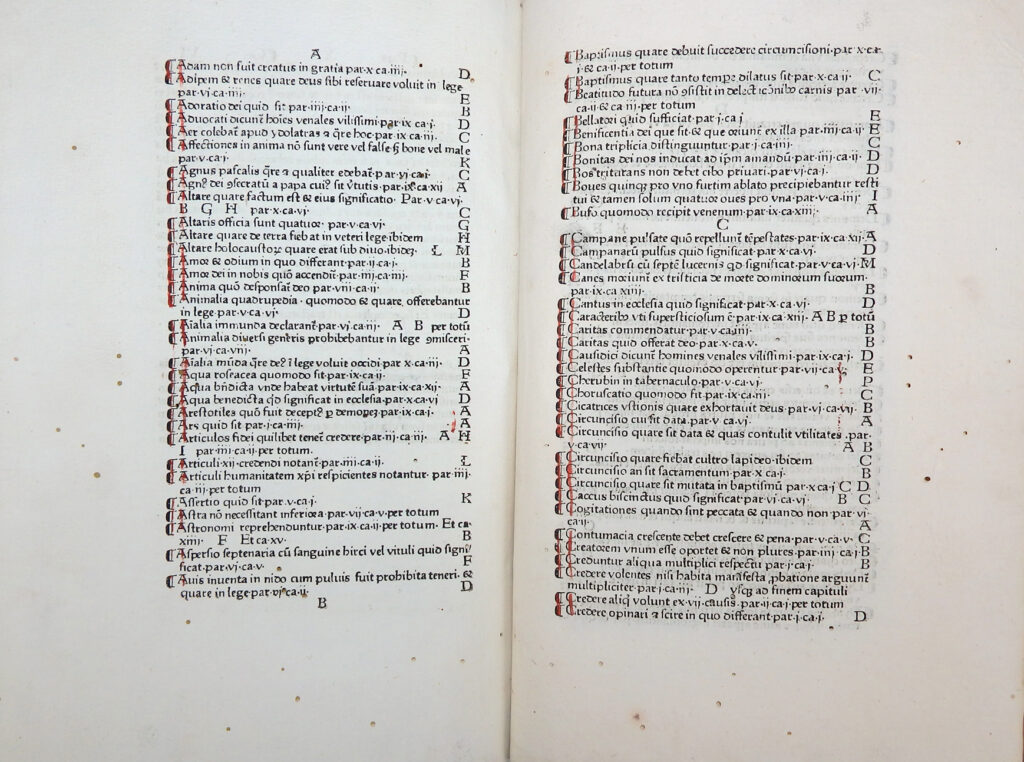 A
¶Adam non fuit creatus in gratia par·x·ca·iiij· D
¶Adipem & renes quare deus sibi reseruare voluit in lege
par·vj·ca·iiij· E
¶Adoratio dei quid sit par·iiij·ca·ij· B
¶Aduocati dicunt̃ hoĩes venales vilissimi par ix ca·j· D
¶Aer colebat̃ apud ydolatras & q̃re hoc·par·ix ca·iij· C
¶Affectiones in anima nõ sunt vere vel false bone vel male
par·v·ca·j· K
¶Agnus pascalis q̃re & qualiter edebat̃·par·vj·ca·j· C
par·ix·ca·xij A
¶Altare quare factum est & eius significatio· Par·v ca·vj·
B G H par·x·ca·vj· C
¶Altaris officia sunt quatuor· par·v·ca·vj· G
¶Altare quare de terra fiebat in veteri lege·ibidem H
¶Altare quare erat sub diuo·ibidẽ· L M
¶Amor & odium in quo differant·par·ij·ca·j· B
¶Amor dei in nobis quõ accendit̃·par·iiij·ca·iiij· F
¶Anima quõ desponsat̃ deo par·vij·ca·ij· B
¶Animalia quadrupedia· quomodo & quare offerebantur
in lege·par·v·ca·vj· D
¶Aĩalia immunda declarant̃·par·vj·ca·iij· A B per totũ
¶Animalia diuersi gen̄ris prohibebantur in lege ꝯmisceri·
par·vj·ca·vij· A
¶Aĩalia mũda q̃re de⁹ ĩ lege voluit occidi par x·ca·iij· D
¶Aqua rosacea quomodo sit·par·ix·ca·ij· F
¶Aqua bñdicta vnde habeat virtutẽ suã·par·ix·ca·xij· A
¶Aqua benedicta qd significat in ecclesia·par·x·ca·vj D
¶Arestotiles quõ fuit decept⁹ ꝑ demones·par·ix·ca·j· A
¶Ars quid sit par·j·ca·iiij· A
¶Articulos fidei quilibet tenet̃ credere·par·iij·ca·iij· A H
I par·iiij·ca·ij·per totum·
¶Articuli·xij·credendi notant̃·par·iiij·ca·ij· L
¶Articuli humanitatem xp̃i respicientes notantur·par·iiij·
ca·iij·per totum
¶Assertio quid sit·par·v·ca·j· K
¶Astra nõ necessitant inferiora·par·vij·ca·v·per totum
¶Astronomi reprehenduntur·par·ix·ca·ij·per totum· Et ca·
xiiij· F Et ca·xv· B
¶Aspersio septenaria cũ sanguine hirci vel vituli quid signi
ficat·par·vj·ca·v· F
¶Auis inuenta in nido cum puluis fuit prohibita teneri· &
quare in lege·par·vj·ca·ij· D
B
¶Baptismus quare debuit succedere circumcisioni·par·x·ca·
j·& ca·ij·per totum
¶Baptismus quare tanto tempe dilatus sit·par·x·ca·ij· C
¶Beatitudo futura nõ ꝯsistit in carnis par·vij·
ca·ij·& ca iij·per totum
¶Bellatori quid sufficiat·par·j·ca·j E
¶Benificentia dei que sit·& que oriunt̃ ex illa par·iiij·ca·ij· E
¶Bona triplicia distinguuntur·par·j·ca·iiij· C
¶Bonitas dei nos inducat ad ip̃m amandũ·par·iiij·ca·ij· D
¶Bos triturans non debet cibo priuari·par·vj·ca·vj· D
¶Boues quinq pro vno furtim ablato precipiebantur resti
tui & tamen solum quatuor oues pro vna·par·v·ca·iiij· I
¶Bufo quomodo recipit venenum·par·ix·ca·xiij· A
C
¶Campane pulsate quõ repellunt tẽpestates·par·ix·ca·xij· A
¶Campanarũ pulsus quid significat·par·x·ca·vj· D
¶Candelabrũ cũ septẽ lucernis qd significat·par·v·ca·vj· M
¶Canes moriunt̃ ex tristicia de morte dominorum suorum·
par·ix·ca xiij· B
¶Cantus in ecclesia quid significat·par·x·ca·vj· D
¶Caracterib⁹ vti superstĩciosum ẽ·par·ix·ca·xij· A B ꝑ totũ
¶Caritas commendatur·par·v·ca·iiij· B
¶Caritas quid offerat deo·par·x·ca·v· B
¶Causidici dicunt̃ homines venales vilissimi·par·ix·ca·j· D
¶Celestes substantie quomodo operentur·par·vij·ca· E
¶Cherubin in tabernaculo·par·v·ca·vj· P
¶Choruscatio quomodo fit·par·ix·ca·iij· C
¶Cicatrices vstionis quare exhortauit deus·par·vj·ca·vij· B
¶Circuncisio cui sit data·par·v ca·vj· A
¶Circuncisio quare sit data & quas contulit vtilitates·par·
v·ca·vij· A B
¶Circuncisio quare fiebat cultro lapideo·ibidem C
¶Circuncisio an sit sacramentum·par·x·ca·j· B
¶Circuncisio quare sit mutata in baptismũ par·x·ca·j C D
¶Coccus biscinctus quid significat·par·vj·ca·vj· B C
¶Cogitationes quando sint peccata & quando non par·vj·
ca·ij· A
¶Contumacia crescente debet crescere & pena·par·v·ca·v· C
¶Creatorem vnum esse oportet & non plures·par·iij·ca·j· B
¶Creduntur aliqua multiplici respectu par·j·ca·j· B
¶Credere volentes nisi habita manifesta ꝓbatione arguunt̃
multipliciter·par·j·ca·iij· D vsq ad finem capituli
¶Credere aliq̃ volunt ex·vij·causis·par·ij·ca·j·per totum
¶Credere opinari & scire in quo differant·par·j·ca·j· D